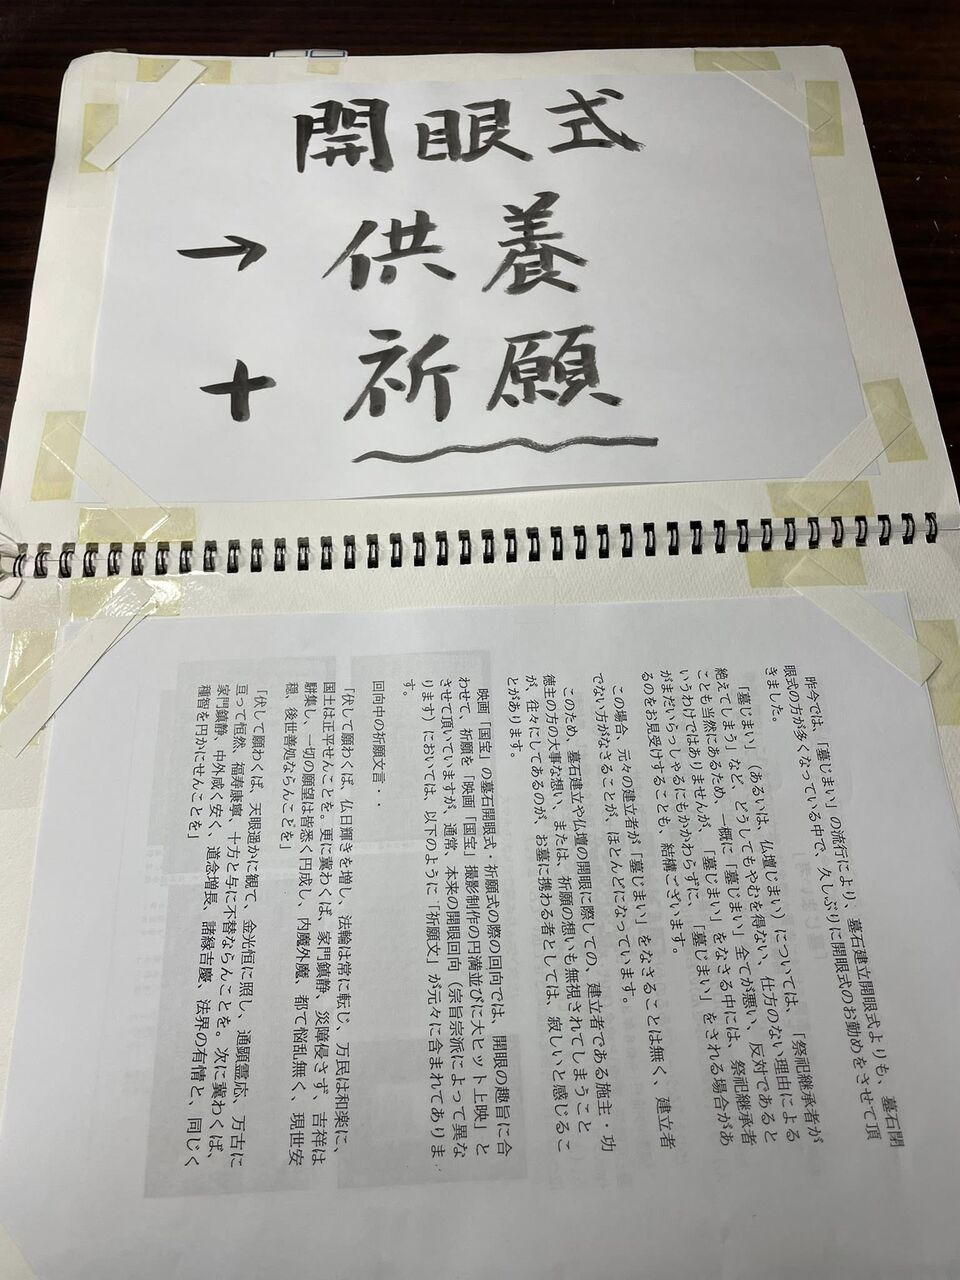 開眼式
→ 供養
+ 祈願
昨今では、「墓じまい」の流行により、墓石建立開眼式よりも、墓石閉
眼式の方が多くなっている中で、久しぶりに開眼式のお勤めをさせて頂
きました。
「墓じまい」（あるいは、仏壇じまい）については、「祭祀継承者が
絶えてしまう」など、どうしてもやむを得ない、仕方のない理由による
ことも当然にあるため、一概に「墓じまい」全てが悪い、反対であると
いうわけではありませんが、「墓じまい」をなさる中には、祭祀継承者
がまだいらっしゃるにもかかわらずに、「墓じまい」をされる場合があ
るのをお見受けすることも、結構ございます。
この場合、元々の建立者が「墓じまい」をなさることは無く、建立者
でない方がなさることが、ほとんどになっています。
このため、墓石建立や仏壇の開眼に際しての、建立者である施主・功
徳主の方の大事な想い、または、祈願の想いも無視されてしまうこと
が、往々にしてあるのが、お墓に携わる者としては、寂しいと感じるこ
とがあります。
映画「国宝」の墓石開眼式・祈願式の際の回向では、開眼の趣旨に合
わせて、祈願を「映画「国宝」撮影制作の円満並びに大ヒット上映」と
させて頂いていますが、通常、本来の開眼回向（宗旨宗派によって異な
ります）においては、以下のように「祈願文」が元々に含まれてありま
す。
回向中の祈願文言・・
「伏して願わくば、仏日輝きを増し、法輪は常に転じ、万民は和楽に、
国土は正平せんことを。更に冀わくば、家門鎮静、災障侵さず、吉祥は
駢集し、一切の願望は皆悉く円成し、内魔外魔、都て悩乱無く、現世安
穏、後世善処ならんことを」
「伏して願わくば、天眼遥かに観て、金光恒に照し、通顕霊応、万古に
亘って恒然、福寿康寧、十方と与に不替ならんことを。次に冀わくば、
家門鎮静、中外咸く安く、道念増長、諸縁吉慶、法界の有情と、同じく
種智を円かにせんことを」